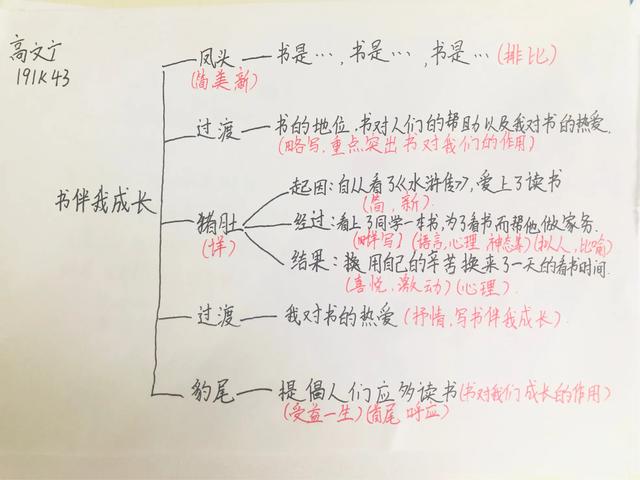 高文宁
191K43
书伴我成长
凤头 — 书是…,书是…,书是…(排比)
(简美新)
过渡 — 书的地位.书对人们的帮助以及我对书的热爱.
(略写,重点突出书对我们的作用)
猪肚
(详)
起因:自从看了《水浒传》,爱上了读书
(简,新).
经过:看上了同学一本书,为了看书而帮他做家务.
(详写)(语言,心理,神态等)(拟人,比喻)
结果:换用自己的辛苦换来了一天的看书时间.
(喜悦,激动)(心理).
过渡 — 我对书的热爱(抒情,写书伴我成长).
豹尾 — 提倡人们应多读书(书对我们成长的作用)
(受益一生)(首尾呼应)